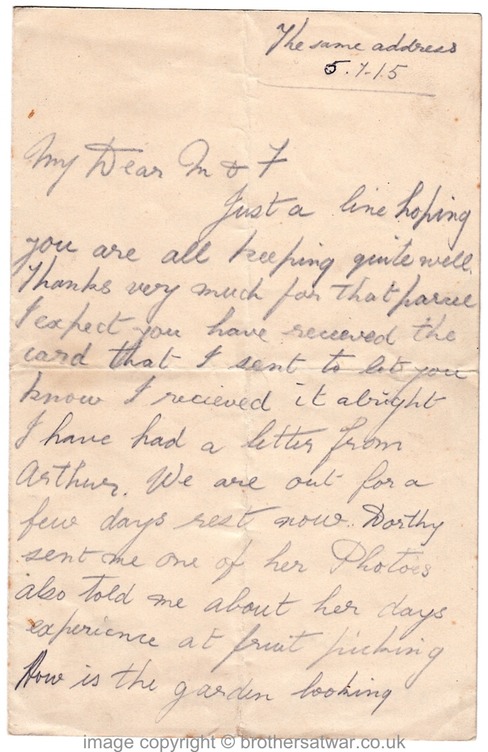 The same address
5.7.15
My Dear M & F
Just a line hoping
you are all keeping quite well.
Thanks very much for that parcel
I expect you have recieved the
card that I sent to let you
know I recieved it alright
I have had a letter from
Arthur. We are out for a
few days rest now. Dorthy
sent me one of her Photoes
also told me about her days
experience at fruit picking
How is the garden looking
image copyright © brothersatwar.co.uk